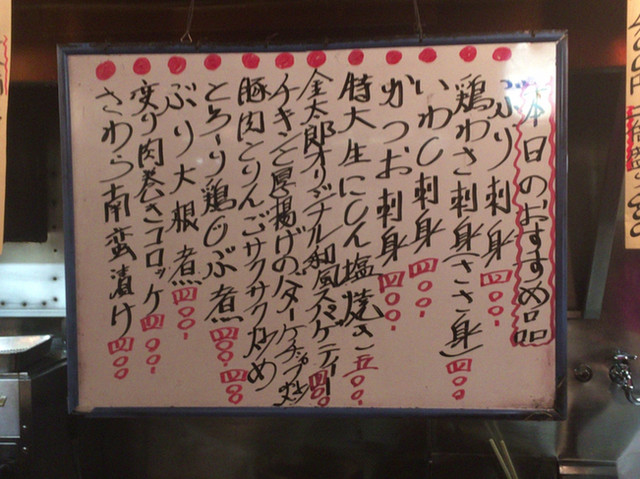 本日のおすすめ品
ぶり刺身 四〇〇-
鶏わさ刺身(ささ身) 四〇〇
いわし刺身 四〇〇-
かつお刺身 四〇〇-
特大生にしん塩焼き 五〇〇-
金太郎オリジナル和風スパゲティー 四〇〇
チキンと厚揚げのバターケチャップ炒
豚肉とりんごサクサク炒め 四〇〇
とろーり鶏じぶ煮 四〇〇-
ぶり大根煮 四〇〇-
変り肉巻きコロッケ 四〇〇-
さわら南蛮漬け 四〇〇